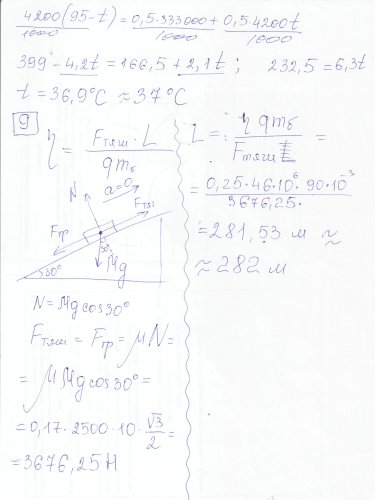 4200(95-t)/1000 = 0,5·333000/1000 + 0,5·4200t/1000
399 - 4,2t = 166,5 + 2,1t ; 232,5 = 6,3t
t = 36,9°C ≈ 37°C
9
η = Fтяги · L / qmб
N
a=0
Fтяги
Fтр
30°
Mg
30°
N = Mg cos30°
Fтяги = Fтр = μN =
= μMg cos30° =
= 0,17·2500·10·√3/2 =
= 3676,25 Н
L = η qmб / Fтяги =
= 0,25·46·10⁶·90·10⁻³ / 3676,25
= 281,53 м ≈
≈ 282 м